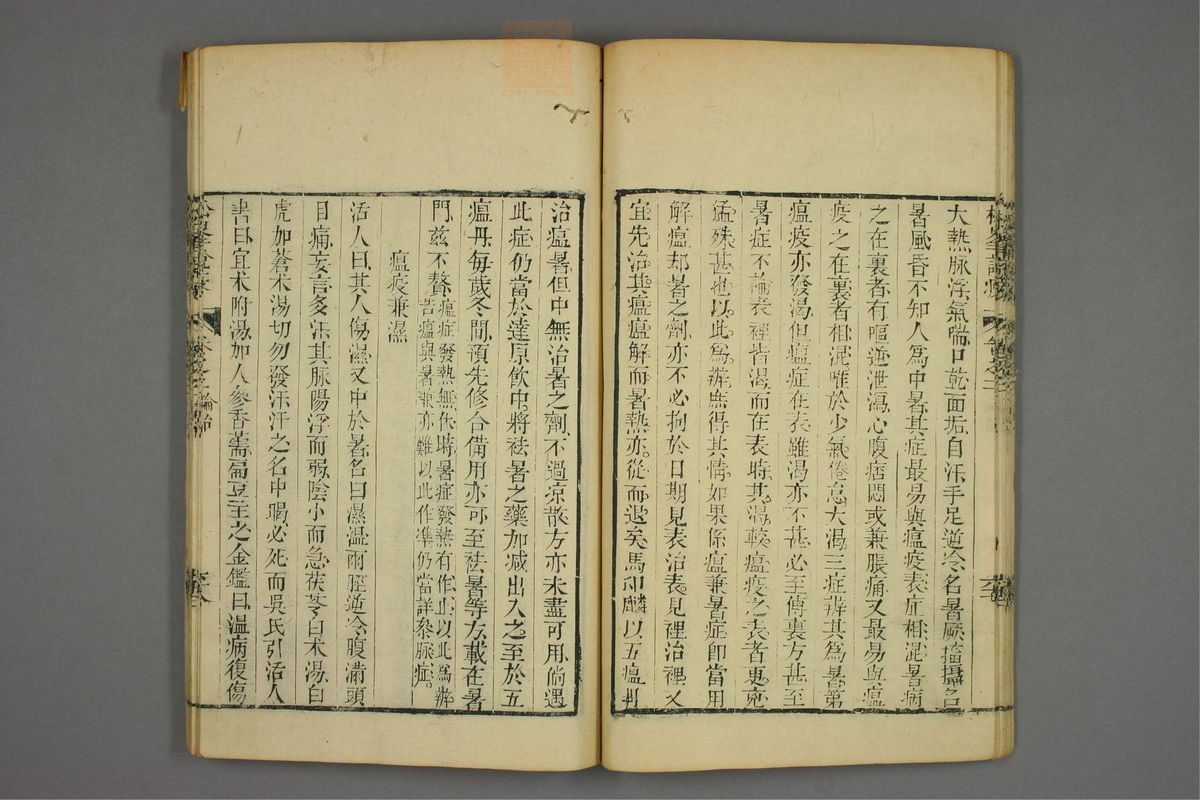 大熱脉浮氣喘口乾面垢自汗手足逆冷名暑厥搐搦名
暑風昏不知人爲中暑其症最易與瘟疫表症相混暑病
之在裏者有嘔逆泄瀉心腹痞悶或兼脹痛又最易與瘟
疫之在裏者相混唯於少氣倦怠大渴三症辨其爲暑第
瘟疫亦發渴但瘟症在表雖渴亦不甚必至傳裏方甚至
暑症不論表裡皆渴而在表時其渴較瘟疫之表者更兇
猛殊甚也以此爲辨庶得其情如果係瘟兼暑症卽當用
解瘟却暑之劑亦不必拘於日期見表治表見裡治裡又
宜先治其瘟瘟解而暑熱亦從而退矣馬印麟以五瘟丹
治瘟暑但中無治暑之劑不過凉散方亦未盡可用倘遇
此症仍當於達原飲中將祛暑之藥加減出入之至於五
瘟丹每歲冬間預先修合備用亦可至祛暑等方載在暑
門兹不贅瘟症發熱無休時暑症發熱有作止以此爲辨
若瘟與暑兼亦難以此作準仍當詳參脉症
瘟疫兼濕
活人曰其人傷濕又中於暑名曰濕溫兩脛逆冷腹滿頭
目痛妄言多汗其脉陽浮而弱陰小而急茯苓白术湯白
虎加蒼术湯切勿發汗汗之名中暍必死而吳氏引活人
書曰宜术附湯加人參香薷扁豆主之金鑑曰溫病復傷
松峯說疫
卷之二
論治